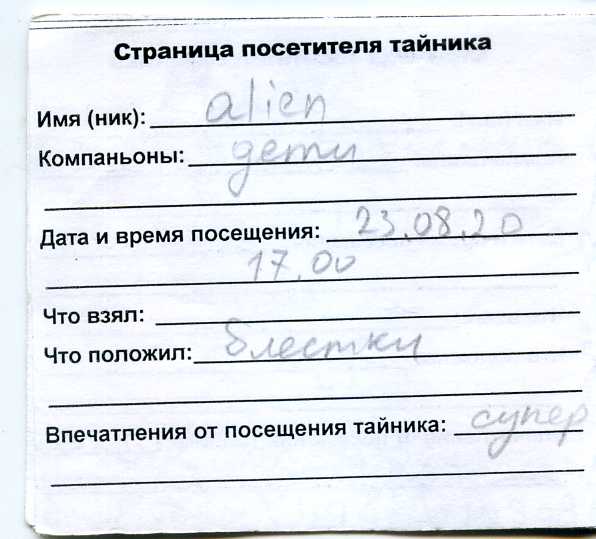 Страница посетителя тайника
Имя (ник): alien
Компаньоны: дети
Дата и время посещения: 23.08.20
17.00
Что взял:
Что положил: блестки
Впечатления от посещения тайника: супер